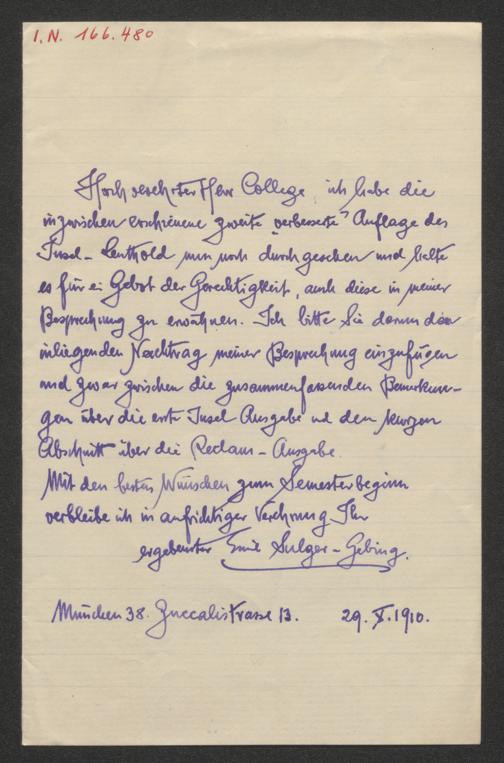 I.N. 166.480
Hochverehrter Herr College, ich habe die
inzwischen erschienene zweite „verbesserte“ Auflage des
Insel-Leuthold nun noch durchgesehen und halte
es für ei Gebot der Gerechtigkeit, auch diese in meiner
Besprechung zu erwähnen. Ich bitte Sie darum den
inliegenden Nachtrag meiner Besprechung einzufügen
und zwar zwischen die zusammenfassenden Bemerkun-
gen über die erste Insel Ausgabe und den kurzen
Abschnitt über die Reclam-Ausgabe.
Mit den besten Wünschen zum Semesterbeginn
verbleibe ich in aufrichtiger Verehrung Ihr
ergebenster Emil Sulger-Gebing.
München 38. Zuccalistrasse 13. 29. X. 1910.